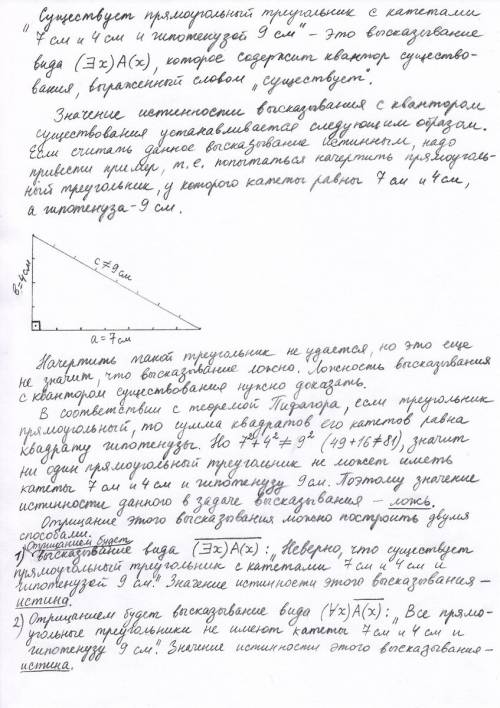 „Существует прямоугольный треугольник с катетами
7 см и 4 см и гипотенузой 9 см" – это высказывание
вида (∃x)A(x), которое содержит квантор существо-
вания, выраженный словом „существует".
Значение истинности высказывания с квантором
существования устанавливается следующим образом.
Если считать данное высказывание истинным, надо
привести пример, т.е. попытаться начертить прямоуголь-
ный треугольник, у которого катеты равны 7 см и 4 см,
а гипотенуза – 9 см.
в=4см
c≠9см
a=7см
Начертить такой треугольник не удается, но это еще
не значит, что высказывание ложно. Ложность высказывания
с квантором существования нужно доказать.
В соответствии с теоремой Пифагора, если треугольник
прямоугольный, то сумма квадратов его катетов равна
квадрату гипотенузы. Но 7²+4²≠9² (49+16≠81), значит
ни один прямоугольный треугольник не может иметь
катеты 7 см и 4 см и гипотенузу 9 см. Поэтому значение
истинности данного в задаче высказывания – ложь.
Отрицание этого высказывания можно построить двумя
способами.
Отрицанием будет
1) высказывание вида (∃x)A(x)̅: „Неверно, что существует
прямоугольный треугольник с катетами 7 см и 4 см и
гипотенузой 9 см". Значение истинности этого высказывания –
истина.
2) Отрицанием будет высказывание вида (∀x)A(x)̅: „Все прямо-
угольные треугольники не имеют катеты 7 см и 4 см и
гипотенузу 9 см". Значение истинности этого высказывания –
истина.